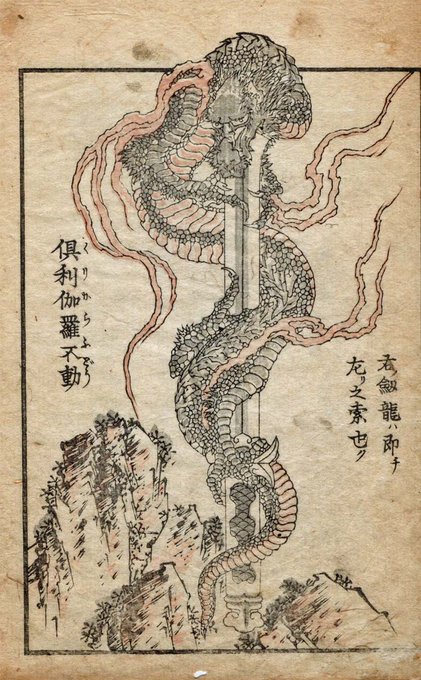 右劔龍ハ即チ
左リ之索也
くりからふどう
俱利伽羅不動